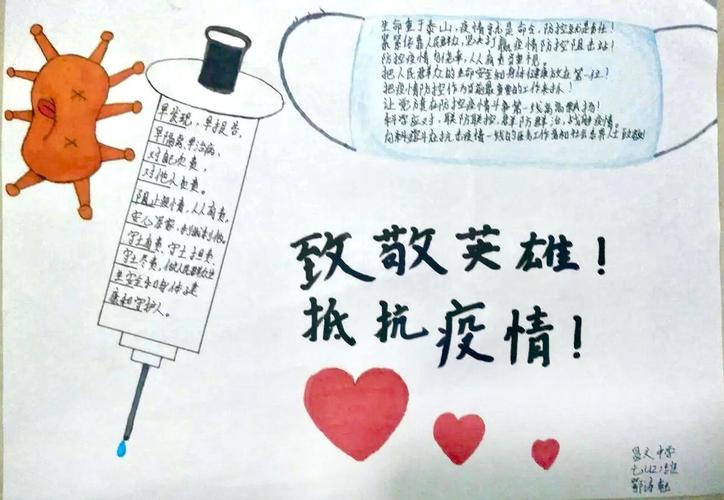 生命重于泰山,疫情就是命令,防控就是责任!
紧紧依靠人民群众,坚决打赢疫情防控阻击战!
防控疫情
把人民群众的生命安全和身体健康放在第一位!
把疫情防控作为当前最重要的工作来抓!
让党旗在防控疫情斗争第一线高高飘扬!
科学应对,联防联控,群防群治,战胜疫情!
向科学斗在抗击疫情一线的医务工作者和社会各界人士致敬!
早发现,早报告,
早隔离,早治病,
对自己负责,
对他人负责。
阻止疫情,人人有责,
安心居家,
守土有责,守土担责,
守土尽责,做人民群众生
命安全和身体健
康的守护人。
致敬英雄!
抵抗疫情!
昌文中学